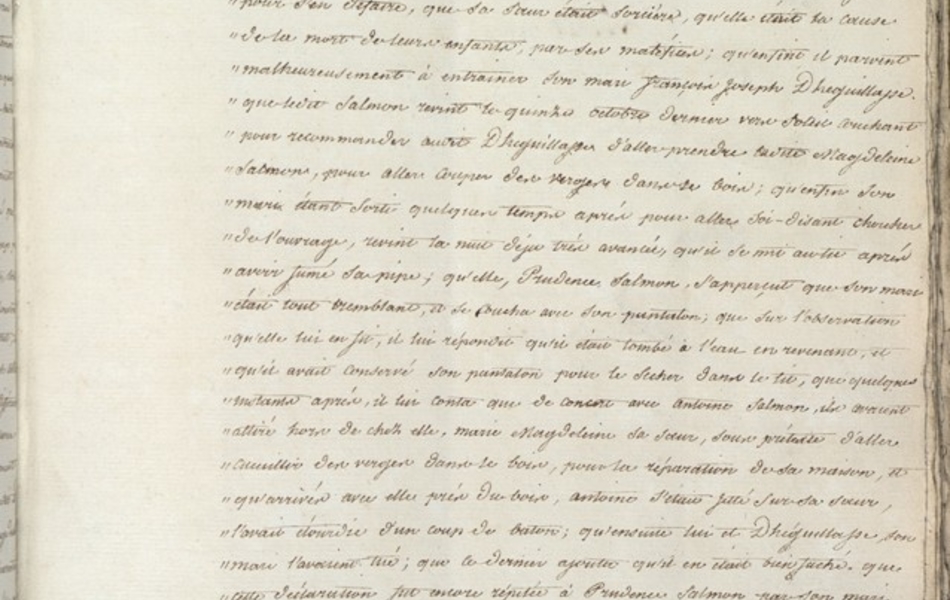 "pour s'en défaire, que sa sœur était sorcière, qu'elle était la cause
"de la mort de leurs enfants, par ses maléfices; qu'enfin il parvint
"malheureusement à entrainer son mari françois joseph Dheguillasse.
"que ledit Salmon revint le quinze octobre dernier vers soleil couchant
"pour recommander audit Dheguillasse d'aller prendre ladite Magdeleine
"Salmon, pour aller couper des verges dans le bois; qu'enfin son
"mari étant sorti quelques temps après pour aller soi-disant chercher
"de l'ouvrage, revint la nuit déja très avancée, qu'il se mit au lit après
"avoir fumé sa pipe; qu'elle, Prudence Salmon, s'apperçut que son mari
"était tout tremblant, et se coucha avec son pantalon; que sur l'observation
"qu'elle lui en fit, il lui répondit qu'il était tombé à l'eau en revenant, et
"qu'il avait conservé son pantalon pour le sècher dans le lit, que quelques
"instants après, il lui conta que de concert avec Antoine Salmon, ils avaient
"attiré hors de chez elle, marie Magdeleine sa sœur, sous prétexte d'aller
"cueuillir des verges dans le bois, pour la réparation de sa maison, et
"qu'arrivés avec elle près du bois, antoine s'était jetté sur sa sœur,
"l'avait étourdie d'un coup de baton; qu'ensuite lui et Dheguillasse, son
"mari l'avaient tué; que ce dernier ajouta qu'il en était bien faché. que
"cette déclaration fut encore répétée à Prudence Salmon par son mari